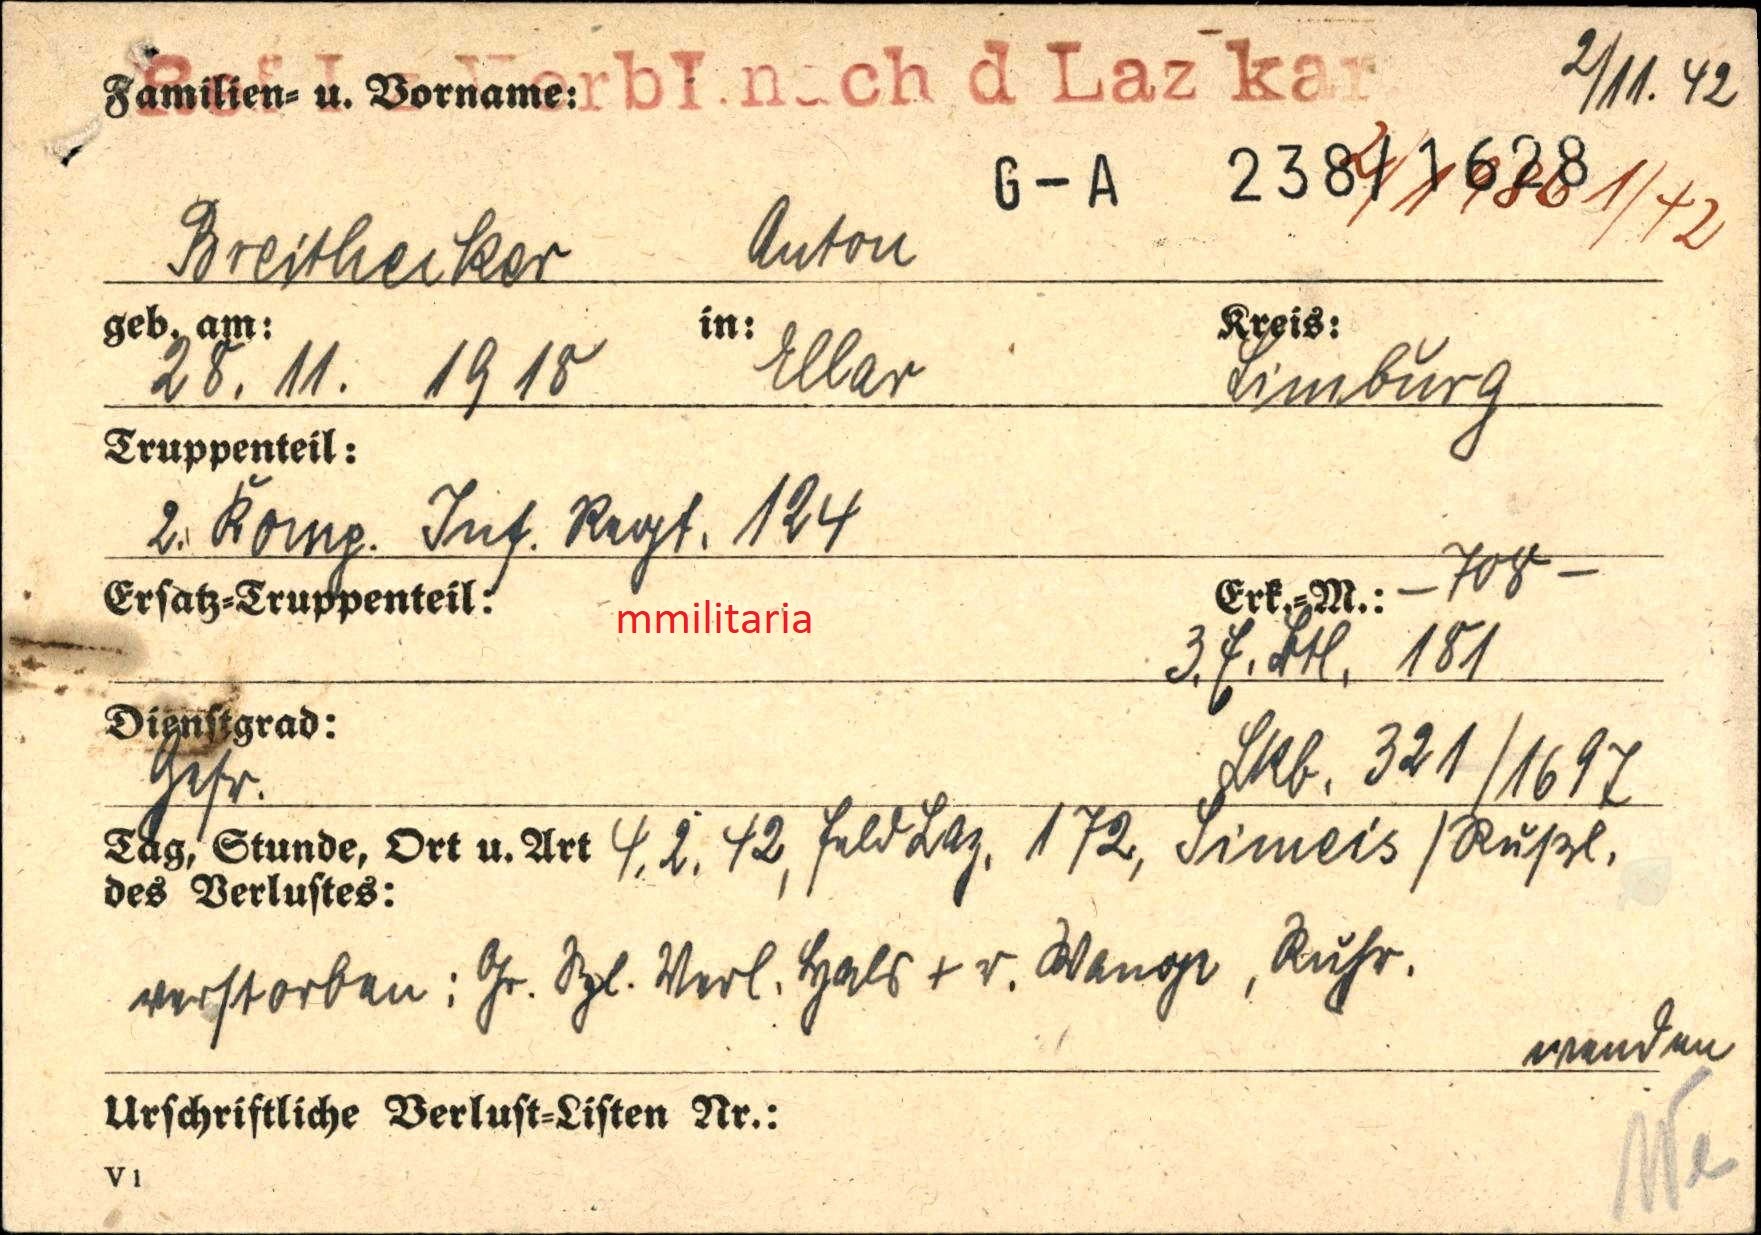 rbI. nach d Laz kar
2/11. 42
Familien- u. Vorname:
G-A 238/1628
Breithecker Anton
geb. am: in: Kreis:
28. 11. 1918 Ellar Limburg
Truppenteil:
2. Komp. Inf. Regt. 124
Ersatz-Truppenteil: Erk.-M.: -708-
mmilitaria
3. E. Btl. 181
Dienstgrad:
Gefr. Lkb. 321/1697
Tag, Stunde, Ort u. Art 4. 2. 42, Feld Laz. 172, Simeis / Rußl.
des Verlustes:
verstorben: Gr. Spl. Verl. Hals + r. Wange, Ruhr.
wenden
Urschriftliche Verlust-Listen Nr.:
V 1